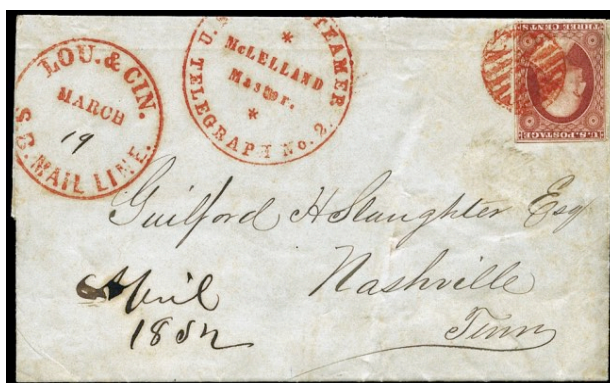 LOU. & CIN.
MARCH
19
S.B. MAIL LINE.
U. STEAMER.
McLELLAND
Master.
TELEGRAPH No. 2.
THREE CENTS
U.S. POSTAGE
Guilford H Slaughter Esq
Nashville
Tenn
April
1852